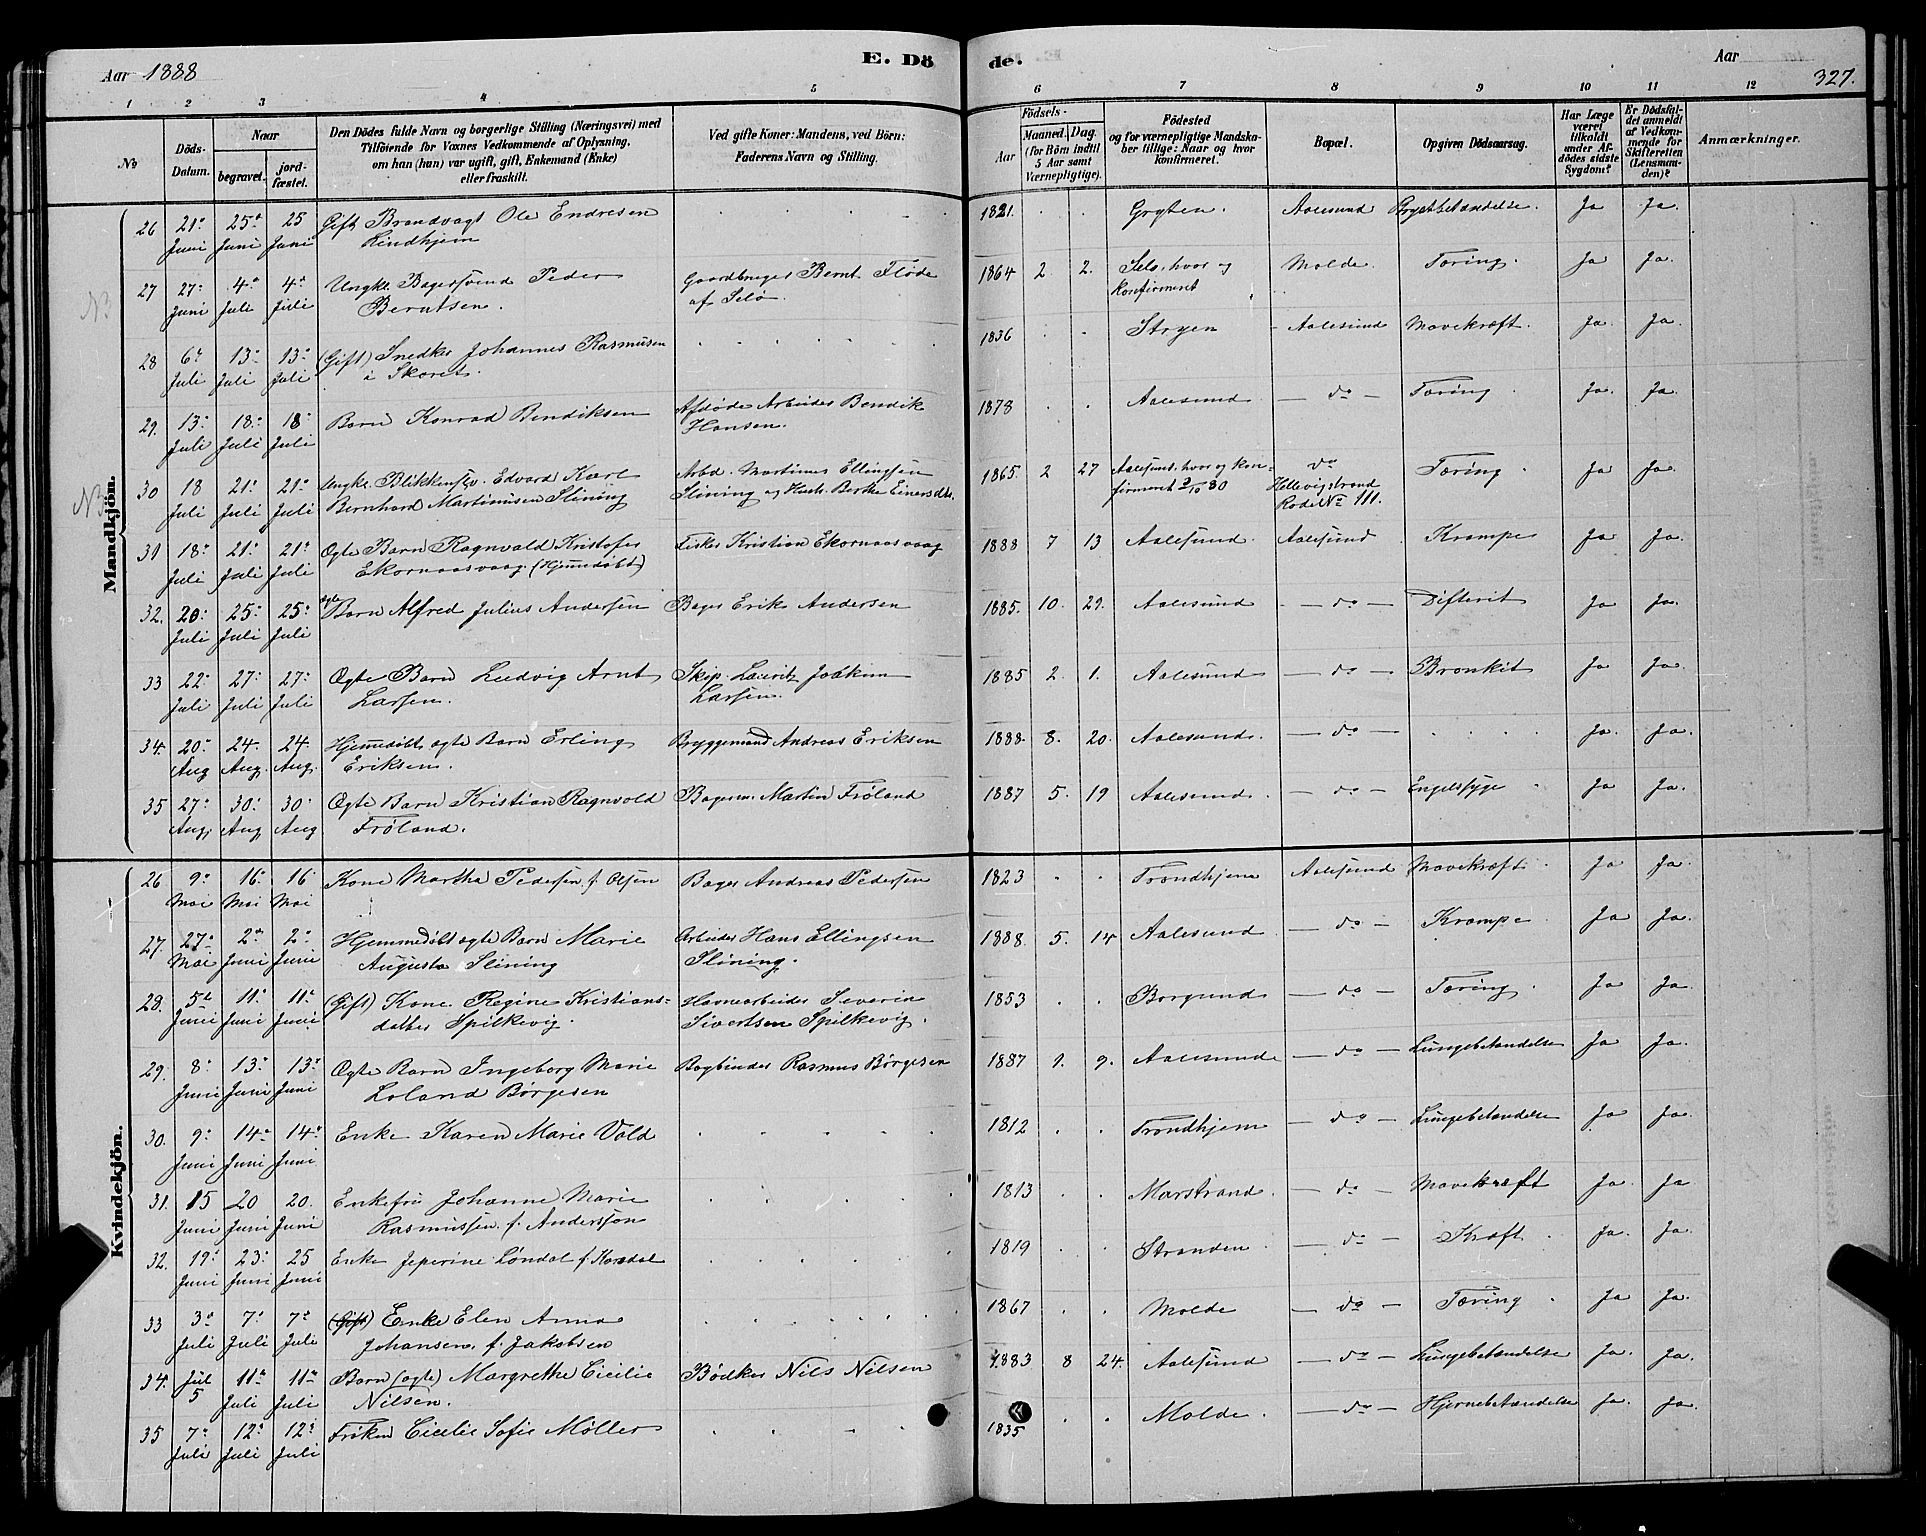 Aar 1888
E. Dö
de.
Aar
327.
1 2 3 4 5 6 7 8 9 10 11 12
No
Döds-Datum.
Naar
begravet.
jord-fæstet.
Den Dödes fulde Navn og borgerlige Stilling (Næringsvei) med
Tilföiende for Voxnes Vedkommende af Oplysning,
om han (hun) var ugift, gift, Enkemand (Enke)
eller fraskilt.
Ved gifte Koner: Mandens, ved Börn:
Faderens Navn og Stilling.
Födsels-
Aar
Maaned. Dag.
(for Börn indtil
5 Aar samt
Værnepligtige).
Födested
og for værnepligtige Mandska-
ber tillige: Naar og hvor
konfirmeret.
Bopæl.
Opgiven Dödsaarsag.
Har Læge
været
tilkaldt
under Af-
dödes sidste
Sygdom?
Er Dödsfal-
det anmeldt
af Vedkom-
mende for
Skifteretten
(Lensman-
den)?
Anmærkninger.
Mandkjön.
26 21de Juni 25de Juni 25 Juni Gift Brandvagt Ole Endresen 1821. Gryten. Aalesund Brystbetændelse. Ja Ja.
Lindhjem
NB 27 27. Juni 4de Juli 4de Juli Ungkl. Bagersvend Peder Gaardbruger Bernt Fløde 1864 2 2. Selø, hvor og Molde. Tæring. Ja Ja.
Berntsen. af Selø. konfirmeret
28 6te Juli 13. Juli 13. Juli (Gift) Snedker Johannes Rasmusen 1836 Stryen Aalesund Mavekræft. Ja. Ja.
i Skaret.
29. 13. Juli 18. Juli 18. Juli Barn Konrad Bendiksen Afdøde Arbeider Bendik 1878 Aalesund — do — Tæring Ja. Ja.
Hansen.
NB 30 18 Juli 21. Juli 21. Juli Ungkl. Blikkensv. Edvard Karl Arbd. Martinus Ellingsen 1865. 2 27 Aalesund, hvor og kon- do Tæring. Ja Ja.
Bernhard Martinusen Slining Slining og Hust. Berthe Einersdtr. firmeret 3/10 80 Hellevigstrand
Rode No 111.
31 18. Juli 21. Juli 21. Juli Ogte Barn Ragnvald Kristofer Fisker Kristian Ekornaasvaag 1888 7 13 Aalesund. Aalesund. Krampe Ja Ja.
Ekornaasvaag. (Hjemedøbt)
32. 20. Juli 25. Juli 25. Juli ogte Barn Alfred Julius Andersen Bager Erik Andersen 1885. 10. 29. Aalesund — do — Difterit Ja Ja.
33 22. Juli 27. Juli 27. Juli Ogte Barn Ludvig Arnt Skip. Lauritz Joakim 1885 2. 1. Aalesund — do — Bronkit Ja Ja.
Larsen. Larsen.
34. 20. Aug 24. Aug. 24. Aug. Hjemedøbt, ogte Barn Erling Bryggemand Andreas Eriksen 1888. 8. 20. Aalesund. — do — Ja. Ja.
Eriksen.
35 27. Aug. 30. Aug 30. Aug Ogte Barn Kristian Ragnvald Bagersv. Martin Frøland 1887 5. 19 Aalesund. — do — Engelsksyge Ja Ja.
Frøland.
Kvindekjön.
26 9. Mai 16. Mai 16 Mai Kone Martha Pedersen f. Olsen Bager Andreas Pedersen 1823 Trondhjem Aalesund Mavekræft. Ja Ja.
27. 27de Mai 2den Juni 2. Juni Hjemmedøbt ogte Barn Marie Arbeider Hans Ellingsen 1888. 5. 14 Aalesund. — do — Krampe. Ja Ja.
Augusta Slining Slining.
28. 5te Juni 11. Juni 11te Juni (Gift) Kone Regine Kristians- Havnearbeider Severin 1853 Borgund — do — Tæring Ja Ja.
datter Spilkevig. Sivertsen Spilkevig.
29. 8. Juni 13. Juni 13. Juni Ogte Barn Ingeborg Marie Bogbinder Rasmus Børgesen 1887 1. 9. Aalesund — do — Lungebetændelse Ja Ja.
Loland Børgesen
30. 9. Juni 14de Juni 14de Juni Enke Karen Marie Vold 1812 Trondhjem — do — Lungebetændelse Ja Ja.
31. 15 Juni 20 Juni 20. Juni Enkefru Johanne Marie 1813 Marstrand. — do — Mavekræft Ja Ja
Rasmussen f. Andersson
32. 19. Juni 23. Juni 25 Juni Enke Jeperine Løndal f. Korsdal 1819 Stranden. — do — Kræft. Ja. Ja.
33 3. Juli 7. Juli 7. Juli (Gift) Enke Elen Anna 1867 Molde — do — Tæring Ja Ja.
Johansen f. Jakobsen
34. Juli 5 11te Juli 11te Juli Barn (ogte) Margrethe Cicilie Bødker Nils Nilsen 1883 8 24. Aalesund — do — Lungebetændelse Ja. Ja.
Nilsen.
35 7. Juli 12. Juli 12. Juli Frøken Cicilie Sofie Møller 1835 Molde. — do — Hjernebetændelse Ja. Ja.